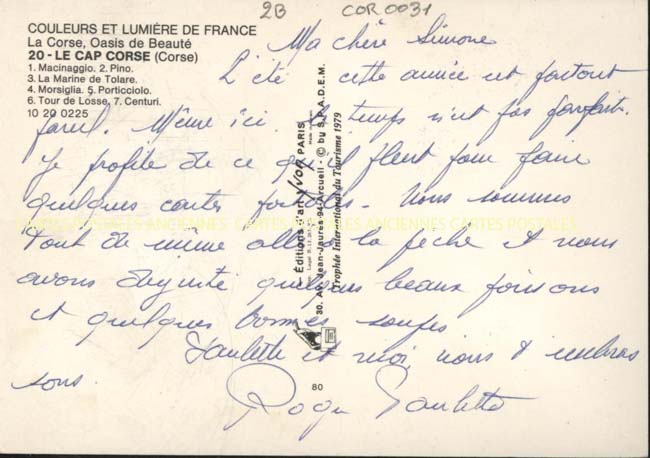 COULEURS ET LUMIÈRE DE FRANCE
La Corse, Oasis de Beauté
20 - LE CAP CORSE (Corse)
1. Macinaggio. 2. Pino.
3. La Marine de Tolare.
4. Morsiglia. 5. Porticciolo.
6. Tour de Losse. 7. Centuri.
10 20 0225
2B
COR 0031
Ma chère Simone
L'été cette année est partout
pareil. Même ici le temps n'est pas parfait.
Je profite de ce qu'il pleut pour faire
quelques cartes postales. Nous sommes
tout de même allés à la pêche et nous
avons dégusté quelques beaux poissons
et quelques bonnes soupes
Paulette et moi nous t'embras
sons.
Roger Paulette
Éditions d'art YVON PARIS
30, Av. Jean-Jaurès-94-Arcueil - © by S.P.A.D.E.M.
Trophée International du Tourisme 1979
80
CARTES POSTALES ANCIENNES CARTES POSTALES ANCIENNES CARTES POSTALES